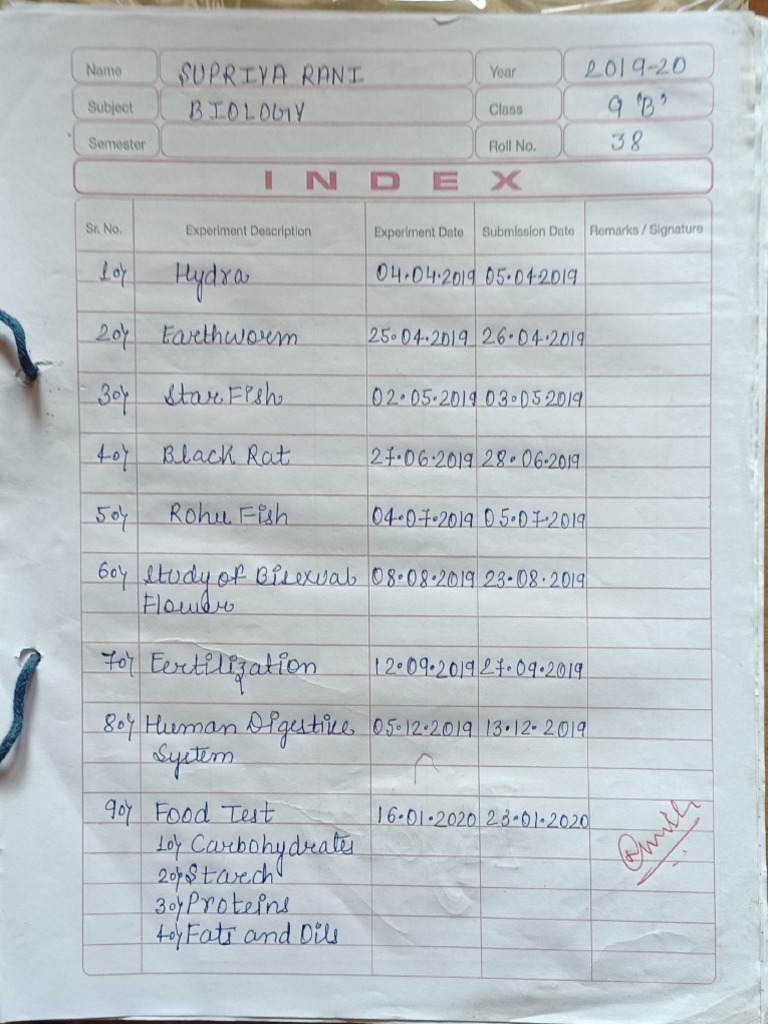 Name SUPRIYA RANI Year 2019-20
Subject BIOLOGY Class 9 "B"
Semester Roll No. 38
INDEX
Sr. No. Experiment Description Experiment Date Submission Date Remarks / Signature
1°/ Hydra 04.04.2019 05.04.2019
2°/ Earthworm 25.04.2019 26.04.2019
3°/ Star Fish 02.05.2019 03.05.2019
4°/ Black Rat 27.06.2019 28.06.2019
5°/ Rohu Fish 04.07.2019 05.07.2019
6°/ Study of Bisexual 08.08.2019 23.08.2019
Flower
7°/ Fertilization 12.09.2019 27.09.2019
8°/ Human Digestive 05.12.2019 13.12.2019
System
9°/ Food Test 16.01.2020 23.01.2020
1°/ Carbohydrates
2°/ Starch
3°/ Proteins
4°/ Fats and Oils